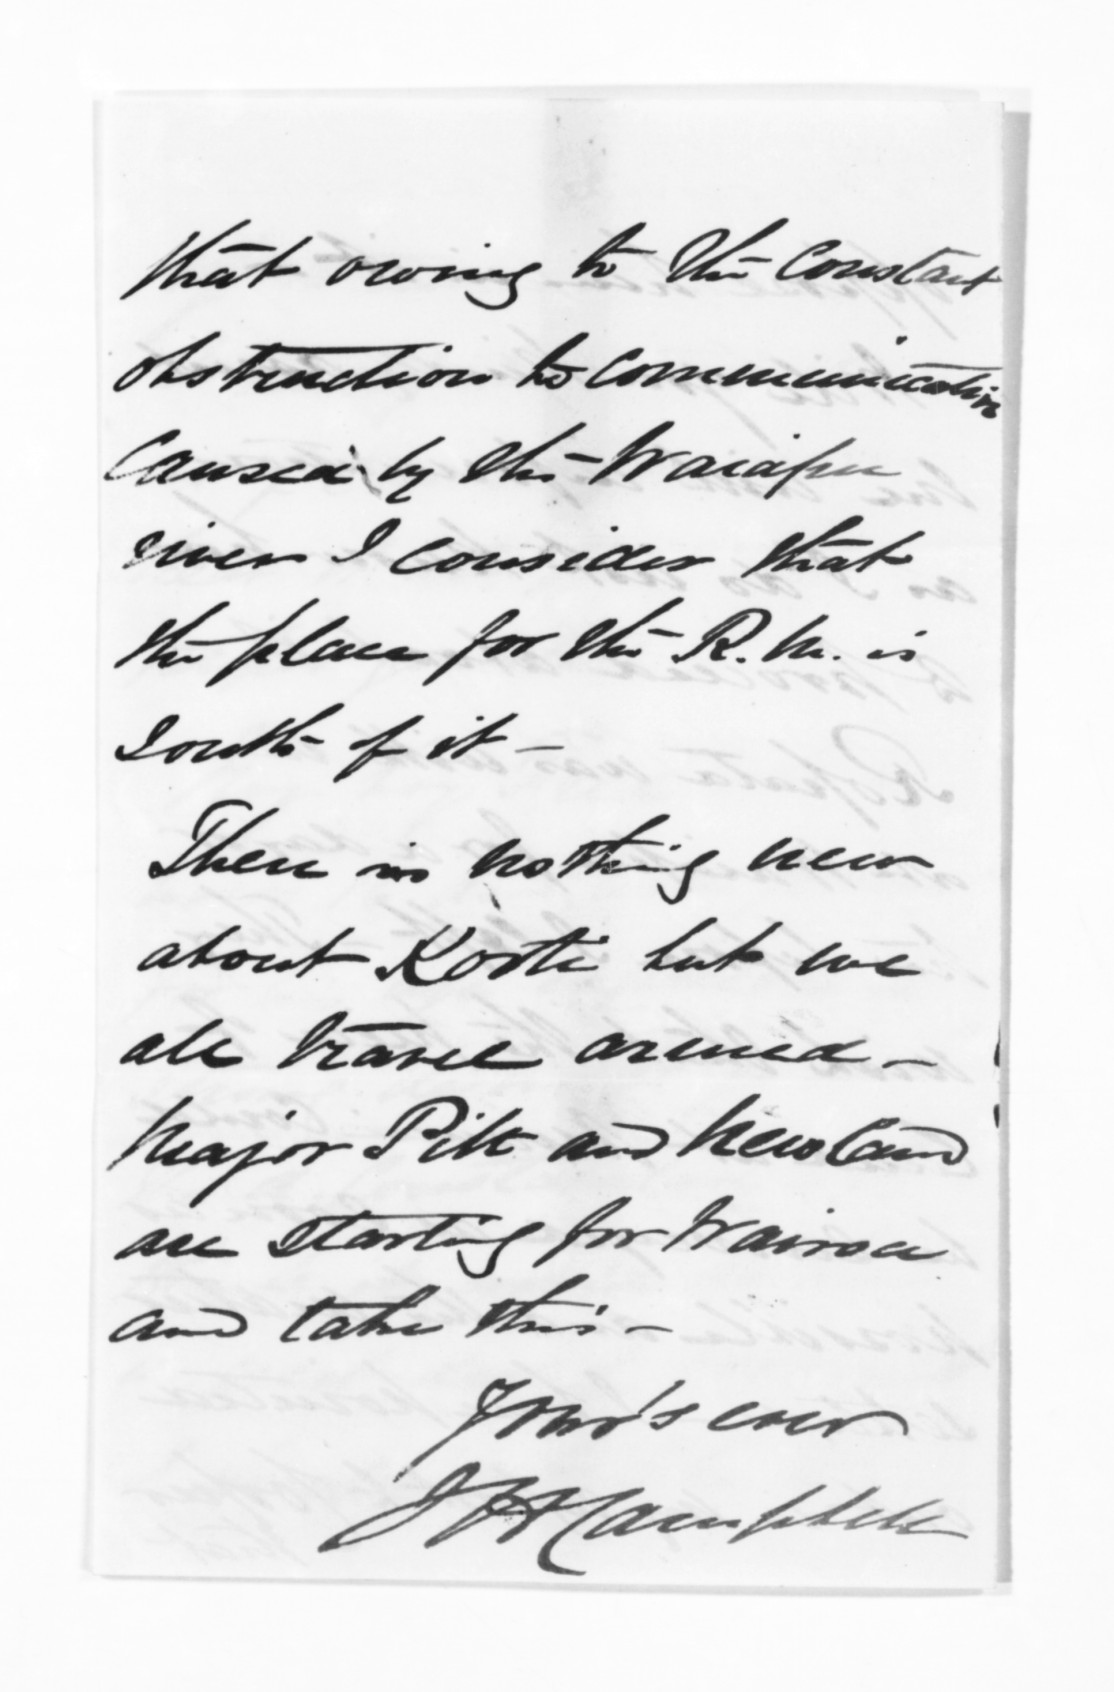 that owing to the Constant
obstruction to communication
Caused by the Waiapu
river I consider that
the place for the R.M. is
South of it —
There is nothing new
about Kooti but we
all travel armed —
Major Pitt and Newland
are starting for Wairoa
and take this —
Your's ever
J H Campbell